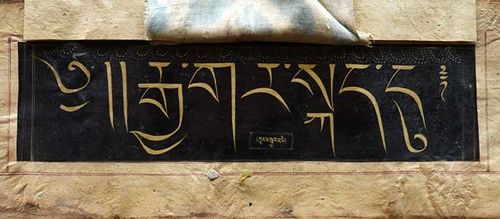 ༄༎རྒྱ་གར་སྐད་དུ